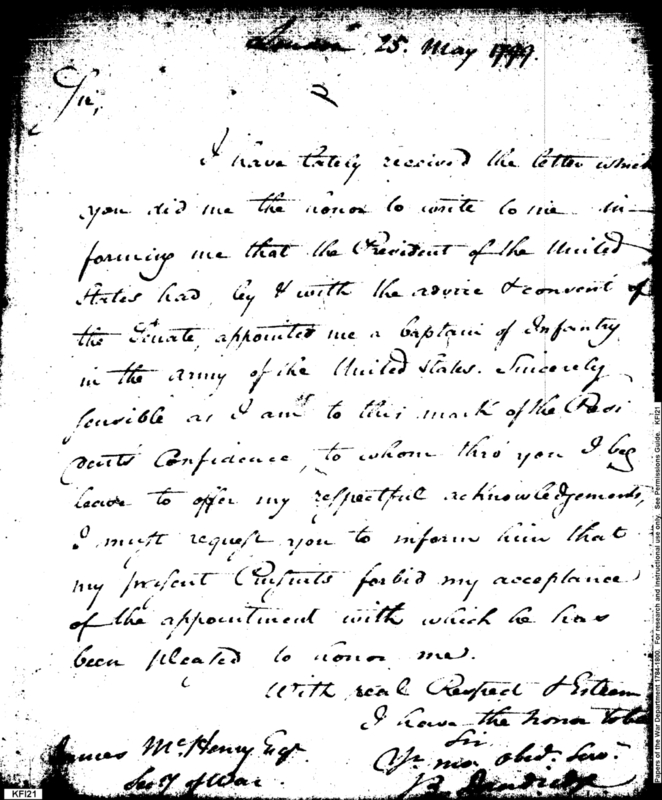 London 25. May 1799.
Sir,
I have lately received the letter which
you did me the honor to write to me in-
forming me that the President of the United
States had, by & with the advice & consent of
the Senate, appointed me a Captain of Infantry
in the army of the United States. Sincerely
sensible as I am to this mark of the Presi
dents Confidence, to whom thro' you I beg
leave to offer my respectful acknowledgements,
I must request you to inform him that
my present Pursuits forbid my acceptance
of the appointment with which he has
been pleased to honor me.
With real Respect & Esteem
I have the honor to be
Sir
Yr. mo. obed. Serv.
B Dandridge
James McHenry Esqr.
Secy of War.
KFI21
Papers of the War Department 1784-1800. For research and instructional use only. See Permissions Guide. KFI21